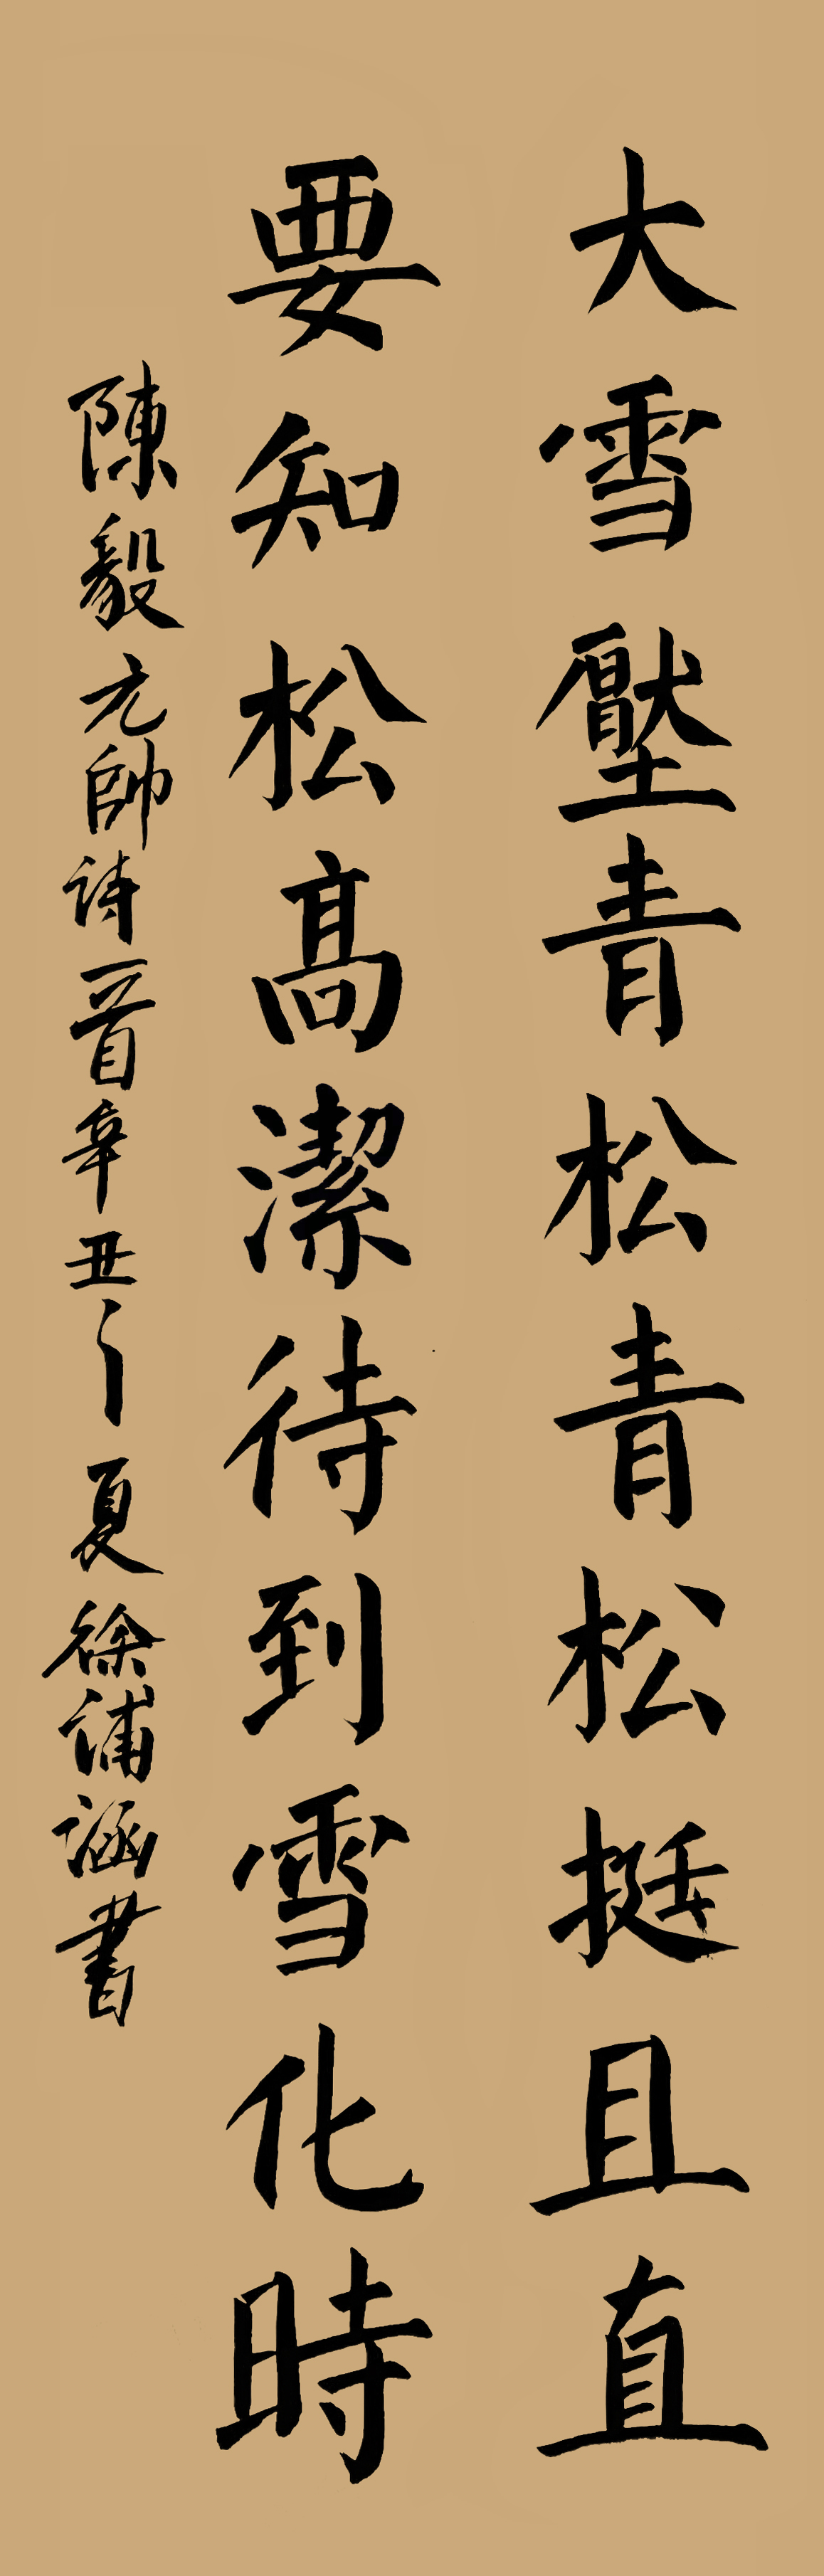 大雪壓青松青松挺且直
要知松高潔待到雪化時
陳毅元帥詩一首辛丑之夏徐誧涵書